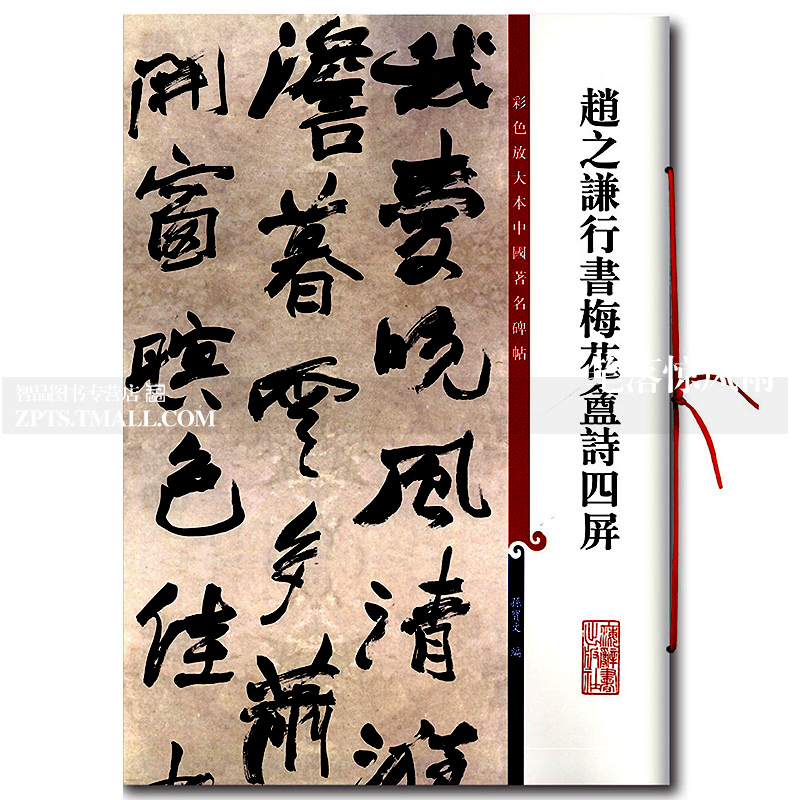 趙之謙行書梅花盦詩四屏
彩色放大本中國著名碑帖
孫寶文 編
上海辭書出版社
我愛晚風清
澹暮雲多蕭
開窗暝色佳
智品图书专营店
ZPTS.TMALL.COM
笔落惊风雨